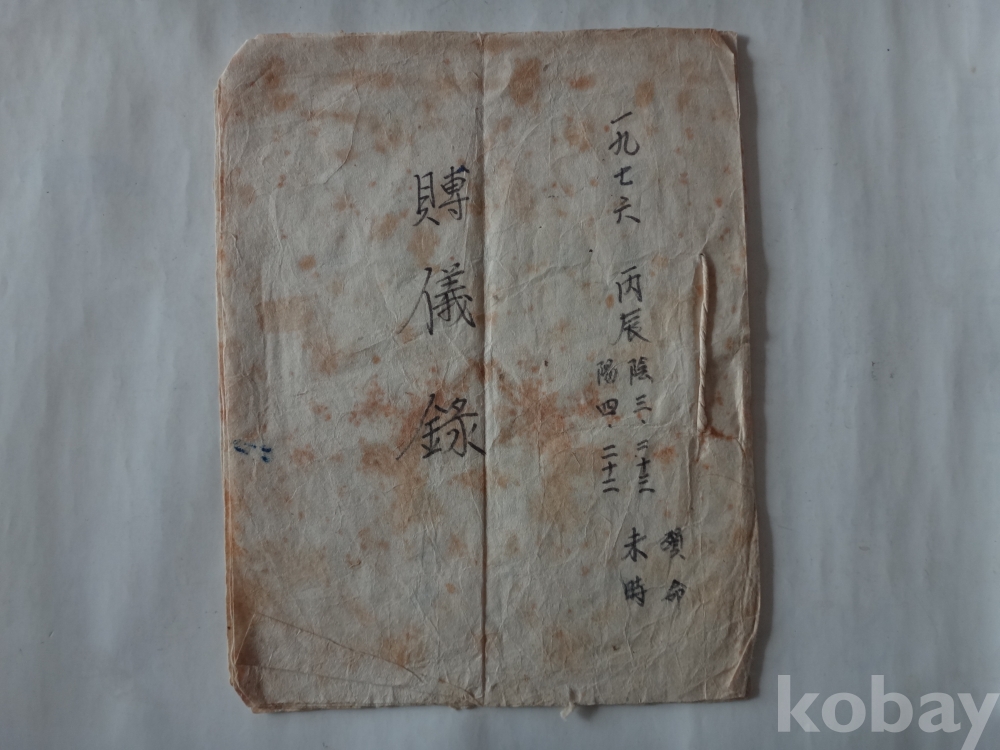 一九七六 丙辰
陰三·二十三
陽四·二十二
未時
殞命
賻儀錄
kobay